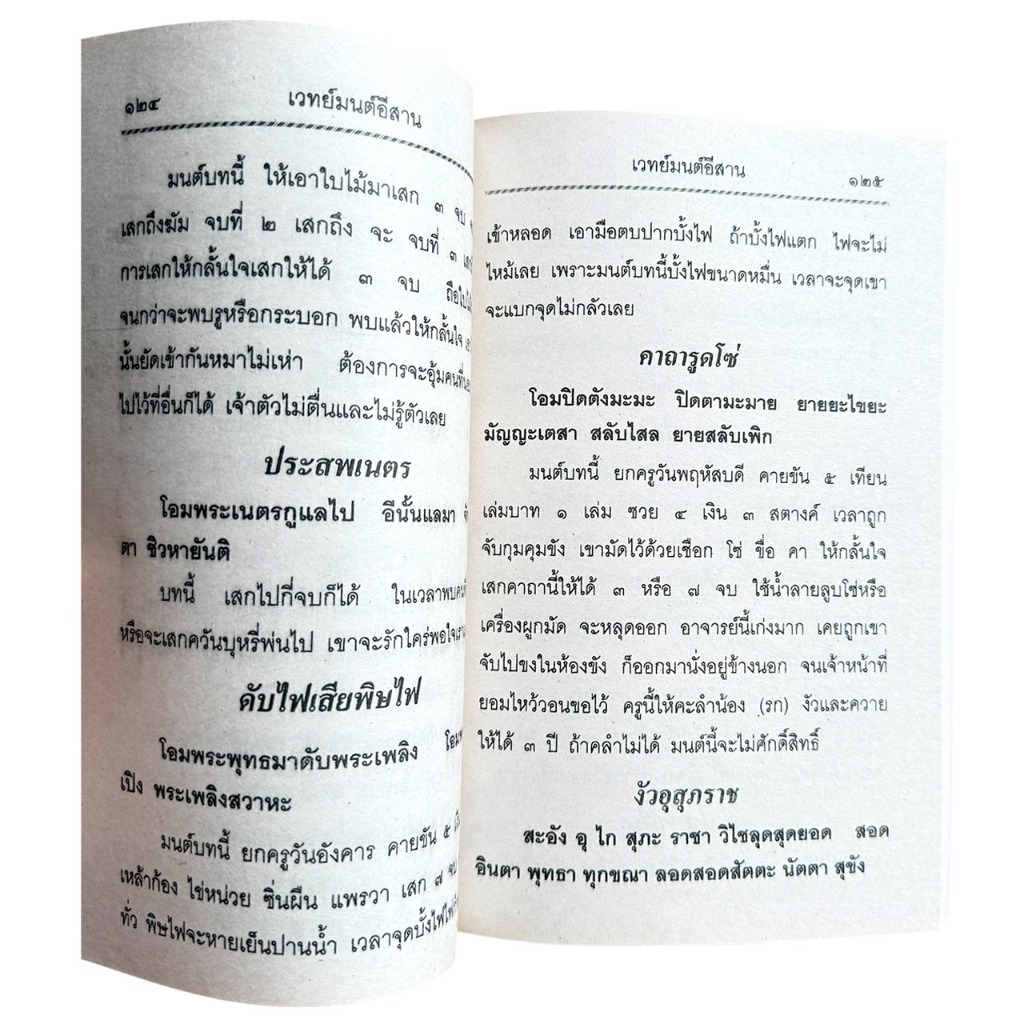 ๑๒๔ เวทย์มนต์อีสาน
มนต์บทนี้ ให้เอาใบไม้มาเสก ๓ จบ
เสกถึงฆัม จบที่ ๒ เสกถึง จะ จบที่ ๓
การเสกให้กลั้นใจเสกให้ได้ ๓ จบ
จนกว่าจะพบรูหรือกระบอก พบแล้วให้กลั้นใจ
นั้นยัดเข้ากันหมาไม่เห่า ต้องการจะอุ้มคนที่
ไปไว้ที่อื่นก็ได้ เจ้าตัวไม่ตื่นและไม่รู้ตัวเลย
ประสพเนตร
โอมพระเนตรกูแลไป อีนั้นแลมา
ตา ชิวหายันติ
บทนี้ เสกไปกี่จบก็ได้ ในเวลาพบ
หรือจะเสกควันบุหรี่พ่นไป เขาจะรักใคร่พอใจ
ดับไฟเสียพิษไฟ
โอมพระพุทธมาดับพระเพลิง
เปิง พระเพลิงสวาหะ
มนต์บทนี้ ยกครูวันอังคาร คายขัน ๕
เหล้าก้อง ไข่หน่วย ซิ่นผืน แพรวา เสก ๗ จบ
ทั่ว พิษไฟจะหายเย็นปานน้ำ เวลาจุดบั้งไฟ
เวทย์มนต์อีสาน ๑๒๕
เข้าหลอด เอามือตบปากบั้งไฟ ถ้าบั้งไฟแตก ไฟจะไม่
ไหม้เลย เพราะมนต์บทนี้บั้งไฟขนาดหมื่น เวลาจะจุดเขา
จะแบกจุดไม่กลัวเลย
คาถารูดโซ่
โอมปิดตังมะมะ ปิดตามะมาย ยายยะไขยะ
มัญญะเตสา สลับไสล ยายสลับเพิก
มนต์บทนี้ ยกครูวันพฤหัสบดี คายขัน ๕ เทียน
เล่มบาท ๑ เล่ม ซวย ๔ เงิน ๓ สตางค์ เวลาถูก
จับกุมคุมขัง เขามัดไว้ด้วยเชือก โซ่ ขื่อ คา ให้กลั้นใจ
เสกคาถานี้ให้ได้ ๓ หรือ ๗ จบ ใช้น้ำลายลูบโซ่หรือ
เครื่องผูกมัด จะหลุดออก อาจารย์นี้เก่งมาก เคยถูกเขา
จับไปขงในห้องขัง ก็ออกมานั่งอยู่ข้างนอก จนเจ้าหน้าที่
ยอมไหว้วอนขอไว้ ครูนี้ให้คะลำน้อง (รก) งัวและควาย
ให้ได้ ๓ ปี ถ้าคลำไม่ได้ มนต์นี้จะไม่ศักดิ์สิทธิ์
งัวอุสุภราช
สะอัง อุ ไก สุภะ ราชา วิไชลุดสุดยอด สอด
อินตา พุทธา ทุกขณา ลอดสอดสัตตะ นัตตา สุขัง